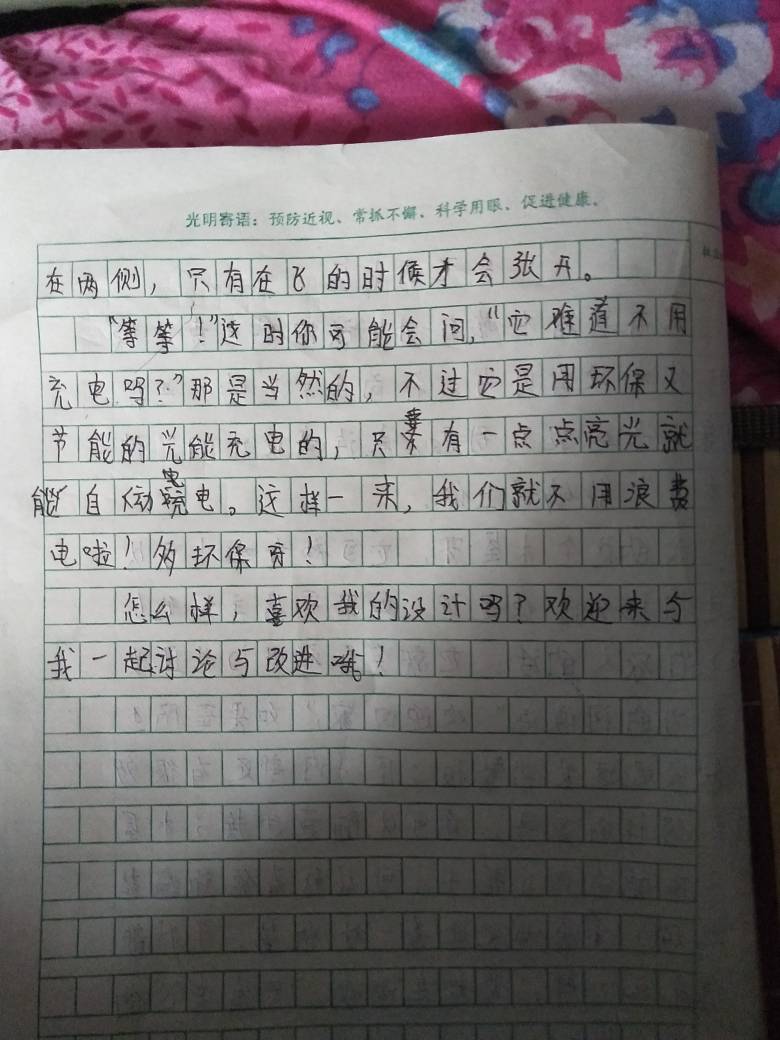 光明寄语：预防近视、常抓不懈、科学用眼、促进健康。
在两侧，只有在飞的时候才会张开。
"等等！"这时你可能会问，"它难道不用
充电吗？"那是当然的，不过它是用环保又
节能的光能充电的，只要有一点点亮光就
能自动充电。这样一来，我们就不用浪费
电啦！多环保呀！
怎么样，喜欢我的设计吗？欢迎来与
我一起讨论与改进哦！